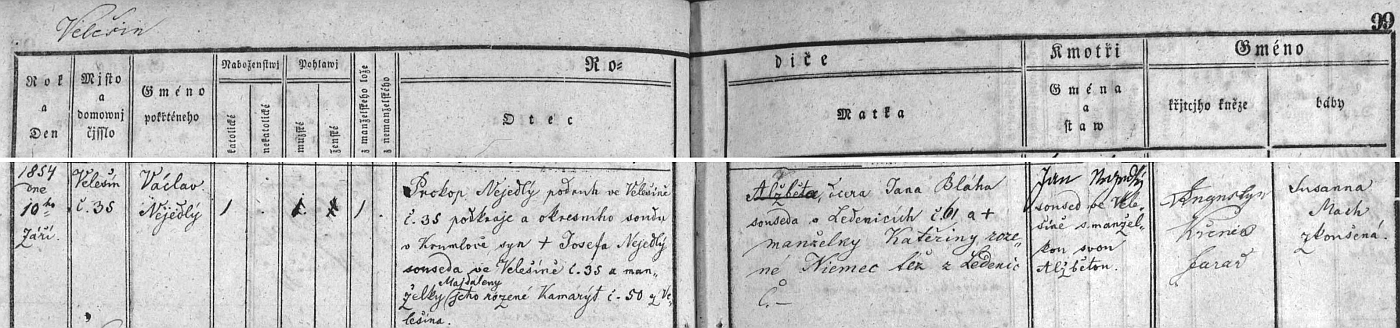 Velešin
99
Rok a Den
Mjsto a domownj čjsslo
Gméno pokřtěného
Naboženstwj
katolické
nekatolické
Pohlawj
mužské
ženské
z manželského lože
z nemanželského
Ro=
diče
Otec
Matka
Kmotři
Gména a staw
Gméno
křtjcjho kněze
báby
1854
dne
10ho
Září.
Velešín
č. 35
Václav
Nejedlý
Prokop Nejedlý podruh ve Velešíně
č. 35 kraje a okresního soudu
v Krumlově syn + Josefa Nejedlý
souseda ve Velešíně č. 35 a man-
Majdaleny
želky jeho rozené Kamarýt č. 50 z Ve-
lešína.
Alžběta, dcera Jana Bláha
souseda v Ledenicích č. 61 a +
manželky Kateřiny roze-
né Niemec též z Ledenic
č. —
Jan
soused ve Vele-
šíně s manžel-
kou svou
Alžbětou.
farař
Susanna
Mach
zkoušená.